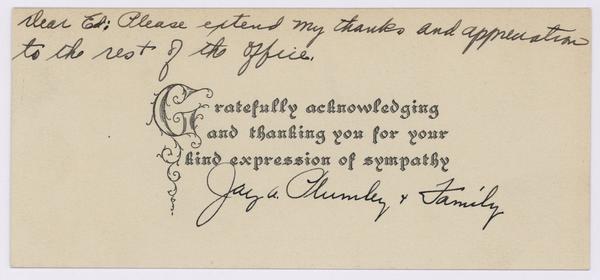 Dear Ed: Please extend my thanks and appreciation
to the rest of the office.
Gratefully acknowledging
and thanking you for your
kind expression of sympathy
Jay A. Plumley & Family